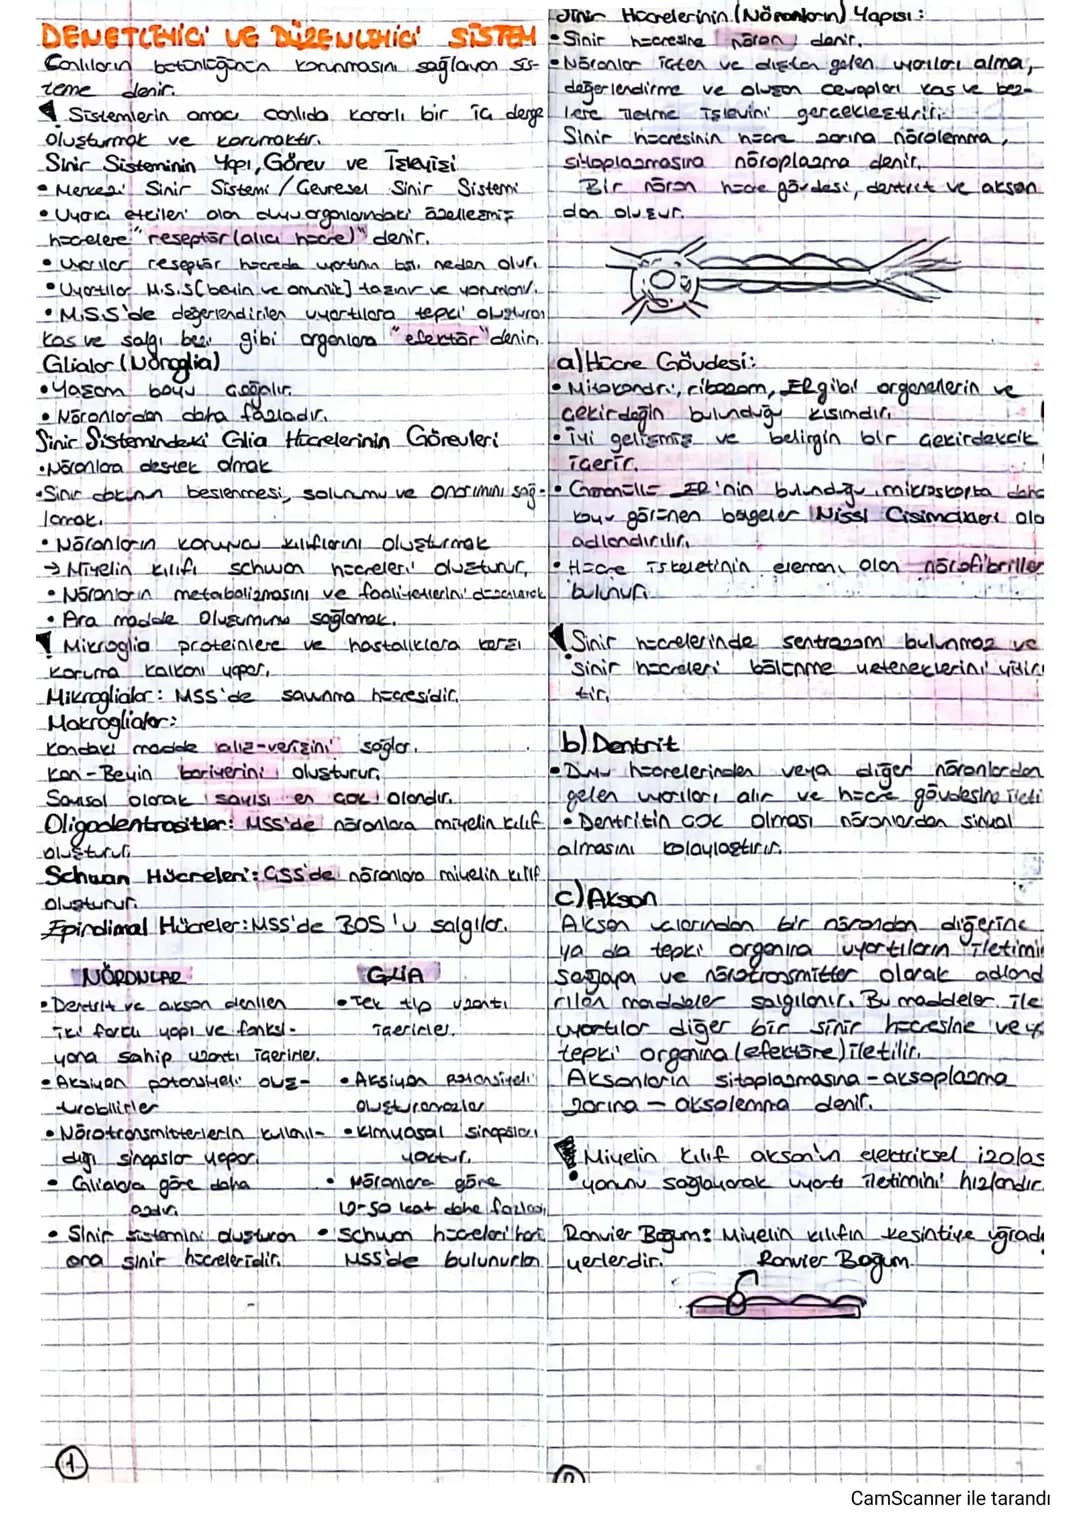 DENETLEYİCİ VE DÜZENLEYİCİ SİSTEM
Canlıların bütünlüğünün korunmasını sağlayan sis-
teme denir.
Sistemlerin amacı canlıda kararlı bir iç denge
oluşturmak ve korumaktır.
Sinir Sisteminin Yapı, Görev ve İşleyişi
• Merkezi Sinir Sistemi / Çevresel Sinir Sistemi
• Uyarıcı etkileri alan duyu organlarındaki özelleşmiş
hücrelere "reseptör (alıcı hücre)" denir.
• Uyarılar reseptör hücrede uyartının neden olur.
• Uyartılar M.S.S (beyin ve omurilik) taşınır ve yorumlanır.
• M.S.S'de değerlendirilen uyartılara tepki oluşturan
kas ve salgı bezi gibi organlara "efektör" denir.
Glialar (Nöroglia)
• Yaşam boyu çoğalır.
• Nöronlardan daha fazladır.
Sinir Sistemindeki Glia Hücrelerinin Görevleri
• Nöronlara destek olmak
• Sinir dokunun beslenmesi, solunumu ve onarımını sağ-
lamak.
• Nöronların koruyucu kılıflarını oluşturmak
→ Miyelin kılıfı schwan hücreleri oluşturur.
• Nöronların metabolizmasını ve faaliyetlerini düzenlemek
• Ara madde oluşumunu sağlamak.
Mikroglia proteinlere ve hastalıklara karşı
koruma kalkanı yapar.
Mikroglialar: MSS'de savunma hücresidir.
Makroglialar:
Kandaki madde alış-verişini sağlar.
Kan-Beyin bariyerini oluşturur.
Sayısal olarak sayısı en çok olandır.
Oligodentrositler: MSS'de nöronlara miyelin kılıf
oluşturur.
Schwan Hücreleri: ÇSS'de nöronlara miyelin kılıf
oluşturur.
Epindimal Hücreler: MSS'de BOS'u salgılar.
NÖRONLAR GLİA
• Dentrit ve akson denilen • Tek tip uzantı
iki farklı yapı ve fonksi- içerirler.
yona sahip uzantı içerirler.
• Aksiyon potansiyeli oluş- • Aksiyon Potansiyeli
turabilirler oluşturamazlar
• Nörotransmitterlerin kullanıl- • Kimyasal sinapsları
dığı sinapslar yapar. yoktur.
• Glialara göre daha • Nöronlara göre
azdır. 10-50 kat daha fazladır
• Sinir sistemini oluşturan • Schwan hücreleri hariç
ana sinir hücreleridir. MSS'de bulunurlar
1
Sinir Hücrelerinin (Nöronların) Yapısı:
• Sinir hücresine nöron denir.
• Nöronlar içten ve dıştan gelen uyarıları alma,
değerlendirme ve oluşan cevapları kas ve bez-
lere iletme işlevini gerçekleştirir.
Sinir hücresinin hücre zarına nörolemma,
sitoplazmasına nöroplazma denir.
Bir nöron hücre gövdesi, dentrit ve akson
dan oluşur.
a) Hücre Gövdesi:
• Mitokondri, ribozom, ER gibi organellerin ve
çekirdeğin bulunduğu kısımdır.
• İyi gelişmiş ve belirgin bir çekirdekcik
içerir.
• Granüllü ER'nin bulunduğu, mikroskopta daha
koyu görünen bölgeler Nissl Cisimcikleri ola
adlandırılır.
• Hücre iskeletinin elemanı olan nörofibriller
bulunur.
Sinir hücrelerinde sentrozom bulunmaz ve
sinir hücreleri bölünme yeteneklerini yitir
tir.
b) Dentrit
• Duyu hücrelerinden veya diğer nöronlardan
gelen uyarıları alır ve hücre gövdesine ileti
• Dentritin çok olması nöronlardan sinyal
almasını kolaylaştırır.
c) Akson
Akson uçlarından bir nörondan diğerine
ya da tepki organına uyartıların iletimin
sağlayan ve nörotransmitter olarak adland
rılan maddeler salgılanır. Bu maddeler ile
uyartılar diğer bir sinir hücresine veya
tepki organına (efektöre) iletilir.
Aksonların sitoplazmasına - aksoplazma
zarına - aksolemma denir.
Miyelin kılıf akson'un elektriksel izolas
yonunu sağlayarak uyartı iletimini hızlandır.
Ranvier Boğum: Miyelin kılıfın kesintiye uğradı
yerlerdir. Ranvier Boğum
CamScanner ile tarandı